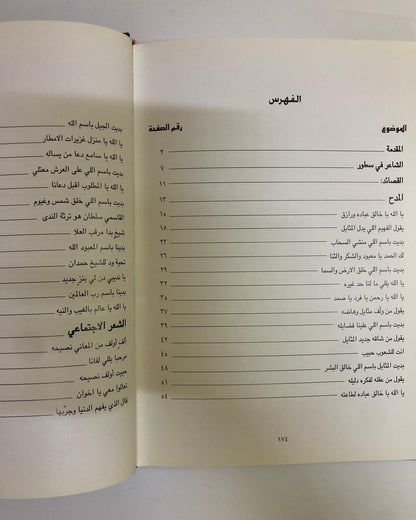 الفهرس
الموضوع رقم الصفحة
المقدمة ٣
الشاعر في سطور ٧
القصائد: ١١
المدح ١٣
يا الله يا خالق عباده ورازق ١٥
يقول الفهيم اللي يدل المثايل ١٨
بديت باسم اللي منشي السحاب ٢١
لك الحمد يا معبود والشكر والثنا ٢٦
بديت باسم اللي خلق الارض والسما ٢٩
يا الله ياللي ما لنا حد غيره ٣٢
يا الله يا رحمن يا فرد يا صمد ٣٥
يقول من ولّف مثايل وهاضه ٣٧
بديت باسم اللي علينا فضايله ٣٩
يقول من شاقه جديد المثايل ٤٢
انت للشعوب حبيب ٤٥
بديت المثايل باسم اللي خالق البشر ٤٨
يقول من عقله لفكره دليله ٥١
يا الله يا خالق عباده لطاعته ٥٤
١٧٤
بديت الجيل باسم الله
يا الله يا منزل غزيرات الامطار
يا الله يا سامع دعا من يساله
بديت باسم اللي على العرش معتلي
يا الله يا المطلوب اقبل دعانا
بديت باسم اللي خلق شمس وغيوم
القاسمي سلطان هو ترثة الندى
شيخ بدا مرقب العلا
بدينا باسم المعبود الله
تحية ود للشيخ حمدان
يا نديبي دن لي بنز جديد
بدينا باسم رب العالمين
يا الله يا عالم بالغيب والنيه
الشعر الاجتماعي
ألف أولف من المعاني نصيحه
مرحبا باللي لفانا
حبيت أولف نصيحه
تعالوا معي يا اخوان
قال الذي يفهم الدنيا وجربها